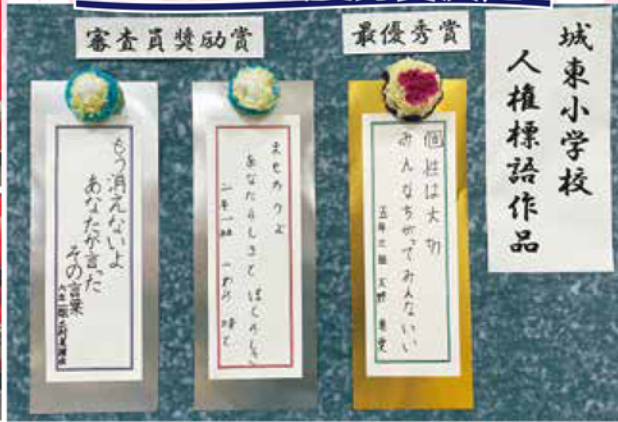 城東小学校
人権標語作品
最優秀賞
個性は大切
みんなちがってみんないい
五年三組
審査員奨励賞
まもろうよ
あなたらしさとぼくらしさ
二年一組
もう消えないよ
あなたが言った
その言葉